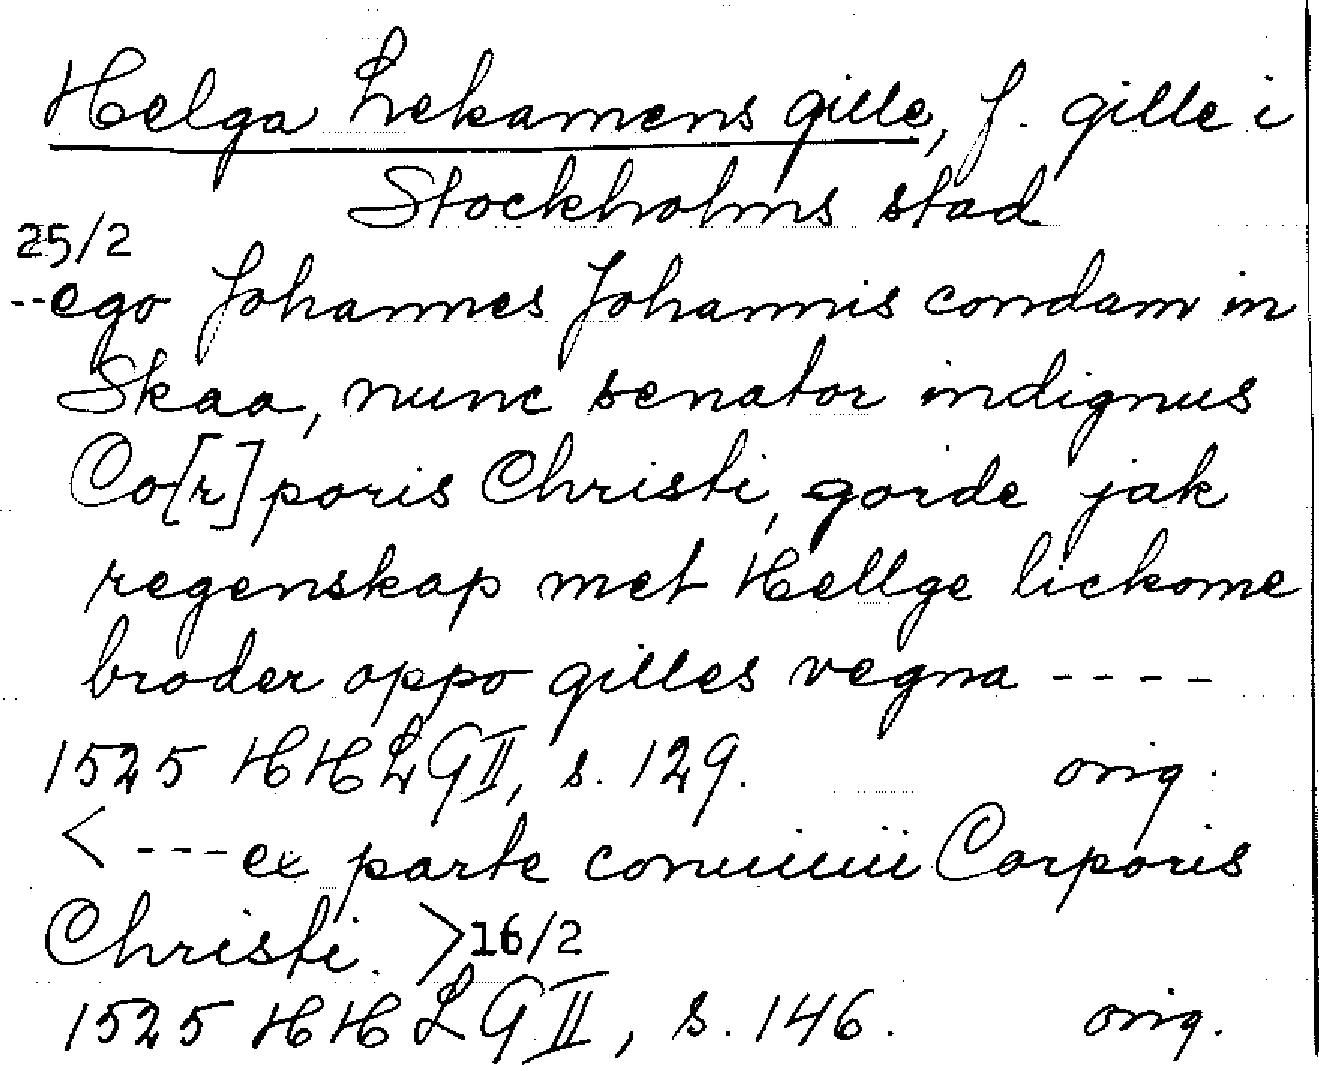 Helga Lekamens gille, f. gille i
Stockholms stad
25/2
--ego Johannes Johannis condam in
Skaa, nunc senator indignus
Co[r]poris Christi, gorde jak
regenskap met Hellge lickome
broder oppo gilles vegna ----
1525 HHLG II, s. 129. orig.
< ---ex parte conuiuii Corporis
Christi. >16/2
1525 HHLG II, s. 146. orig.